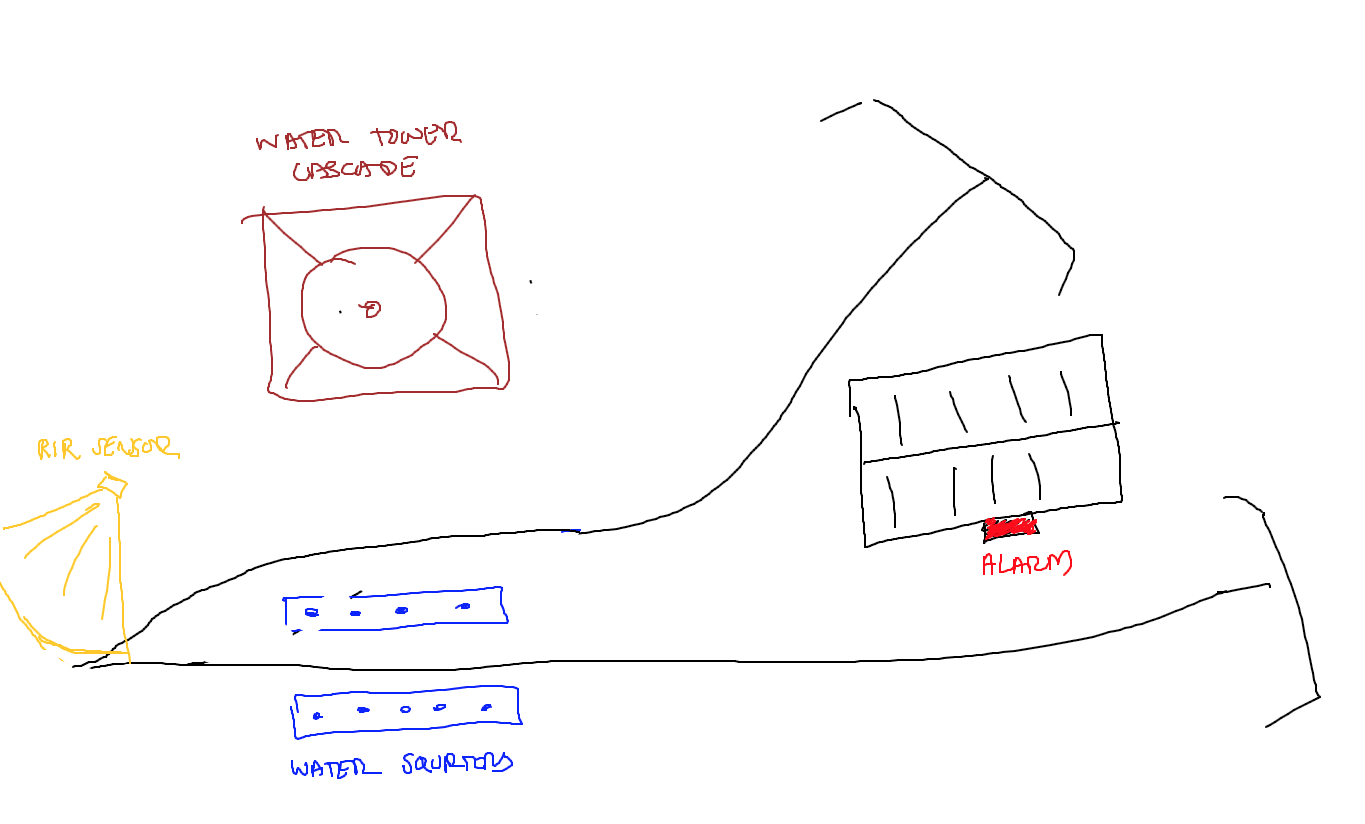 WATER TOWER
CASCADE
PIR SENSOR
ALARM
WATER SQURTORS